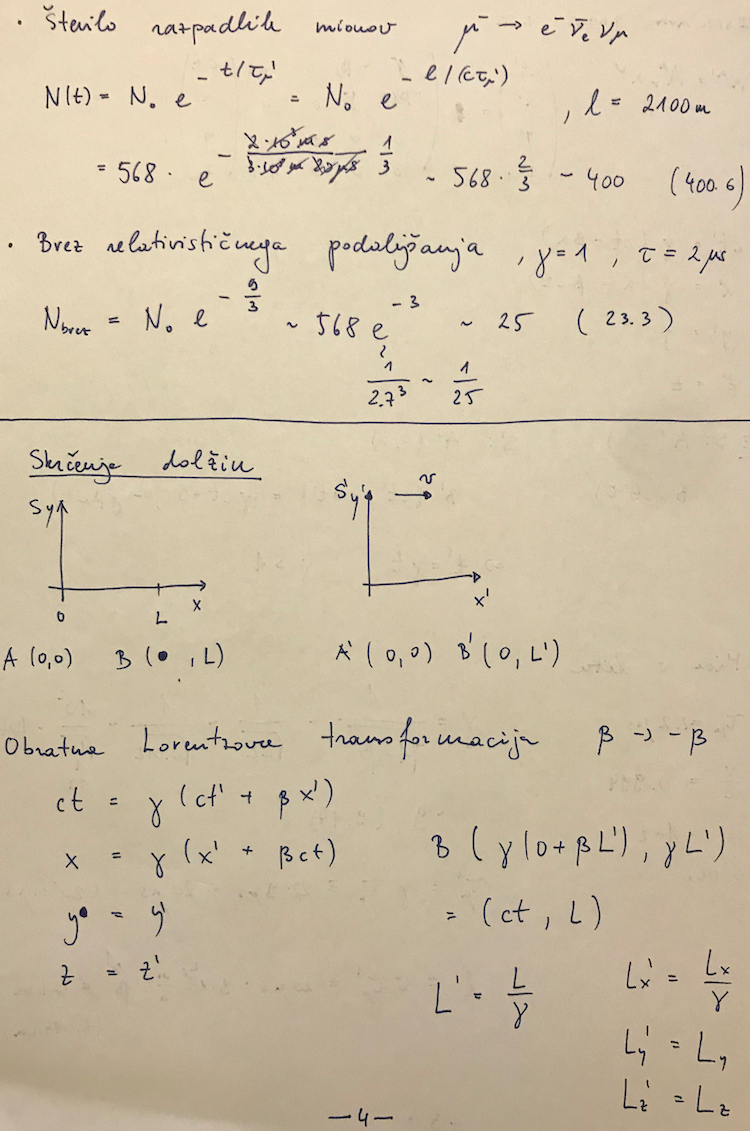 · Število razpadlih mionov μ⁻ → e⁻ ν̄e νμ
N(t) = N₀ e^(- t/τμ') = N₀ e^(- l/(cτμ')) , l = 2100 m
= 568 · e^(- 1/3) ~ 568 · 2/3 ~ 400 (400.6)
· Brez relativističnega podaljšanja , γ = 1 , τ = 2 μs
Nbrez = N₀ e^(- 9/3) ~ 568 e^(-3) ~ 25 (23.3)
1/2.7³ ~ 1/25
Skrčenje dolžin
S y S' y' v
0 L x x'
A (0,0) B ( , L) A' (0,0) B' (0, L')
Obratna Lorentzova transformacija β → -β
ct = γ (ct' + βx')
x = γ (x' + βct) B (γ(0+βL'), γL')
y = y' = (ct, L)
z = z' L' = L/γ Lx' = Lx/γ
Ly' = Ly
Lz' = Lz
—4—